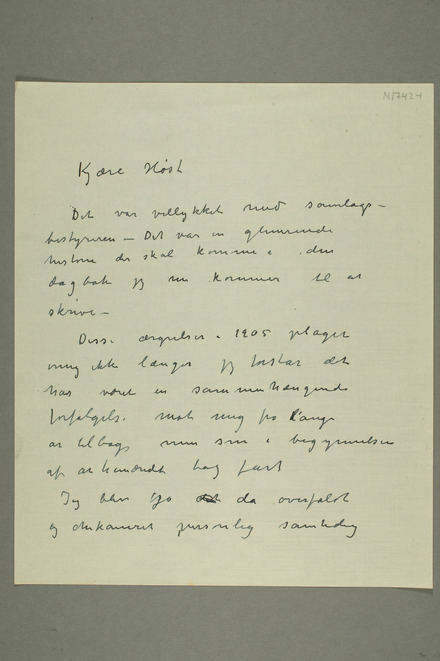 N17424
Kjære Høst
Det var vellykket med samlags-
bestyreren – Det var en glimrende
historie der skal komme i den
dagbok jeg nu kommer til at
skrive –
Disse ærgrelser i 1905 plager
mig ikke længer jeg forstår det
har været en sammenhængende
forfølgelse mot mig fra lange
år tilbage men som i begyndelsen
af århundredet tog fart
Jeg blev jo da overfaldt
og chikaneret personlig samtidig